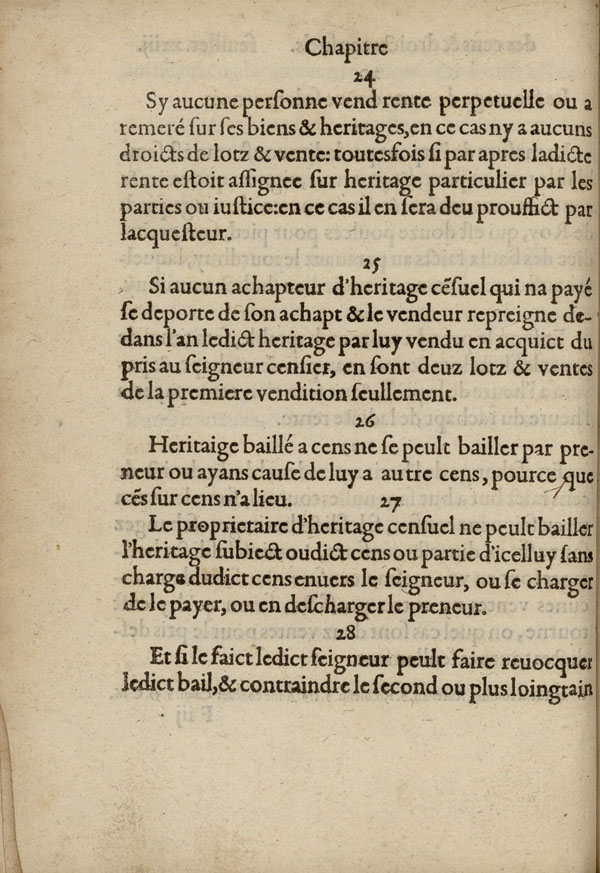 Chapitre
24
Sy aucune perſonne vend rente perpetuelle ou a
remeré ſur ſes biens & heritages,en ce cas ny a aucuns
droicts de lotz & vente: toutesfois ſi par apres ladicte
rente eſtoit aſſignee ſur heritage particulier par les
parties ou iuſtice:en ce cas il en ſera deu prouffict par
lacqueſteur.
25
Si aucun achapteur d'heritage cẽſuel qui na payé
ſe deporte de ſon achapt & le vendeur repreigne de-
dans l'an ledict heritage par luy vendu en acquict du
pris au ſeigneur cenſier, en ſont deuz lotz & ventes
de la premiere vendition ſeullement.
26
Heritaige baillé a cens ne ſe peult bailler par pre-
neur ou ayans cauſe de luy a autre cens, pource que
cẽs ſur cens n'a lieu. 27
Le proprietaire d'heritage cenſuel ne peult bailler
l'heritage ſubiect oudict cens ou partie d'icelluy sans
charge dudict cens enuers le ſeigneur, ou ſe charger
de le payer, ou en deſcharger le preneur.
28
Et ſi le faict ledict ſeigneur peult faire reuocquer
ledict bail,& contraindre le ſecond ou plus loingtain